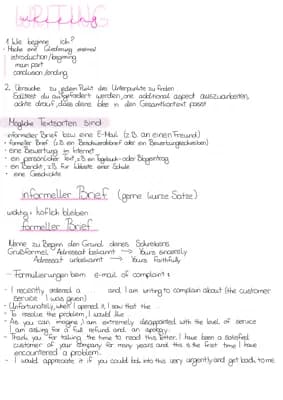 WRITING
writing
1. Wie beginne ich?
• Mache eine Gliederung erstmal
introduction/beginning
main part
conclusion/ending
2. Versuche zu jedem Punkt des Unterpunkte zu finden
Solltest du aufgefordert werden, one additional aspect auszuarbeiten,
achte drauf, dass deine Idee in den Gesamtkontext passt
Mögliche Textsorten sind
informeller Brief bzw eine E-Mail (z.B. an einen Freund)
• formeller Brief (z.B. ein Beschwerdebrief oder ein Bewerbungsschreiben)
• eine Bewertung im Internet
• ein persönlicher Text, z.B. ein Tagebuch- oder Blogeintrag
• ein Bericht, z.B. für Website einer Schule
• eine Geschichte
informeller Brief (gerne kurze Sätze)
wichtig: höflich bleiben
formeller Brief
Nenne zu Beginn den Grund deines Schreibens
Grußformel: Adressat bekannt → Yours sincerely
Adressat unbekannt → Yours faithfully
– Formulierungen beim e-mail of complaint:
• I recently ordered a and I am writing to complain about (the customer
service I was given)
• Unfortunately, when I opened it, I saw that the ...
• To resolve the problem, I would like
• As you can imagine, I am extremely disappointed with the level of service
I am asking for a full refund and an apology.
• Thank you for taking the time to read this letter. I have been a satisfied
customer of your company for many years and this is the first time I have
encountered a problem.
• I would appreciate it if you could look into this very urgently and get back to me.